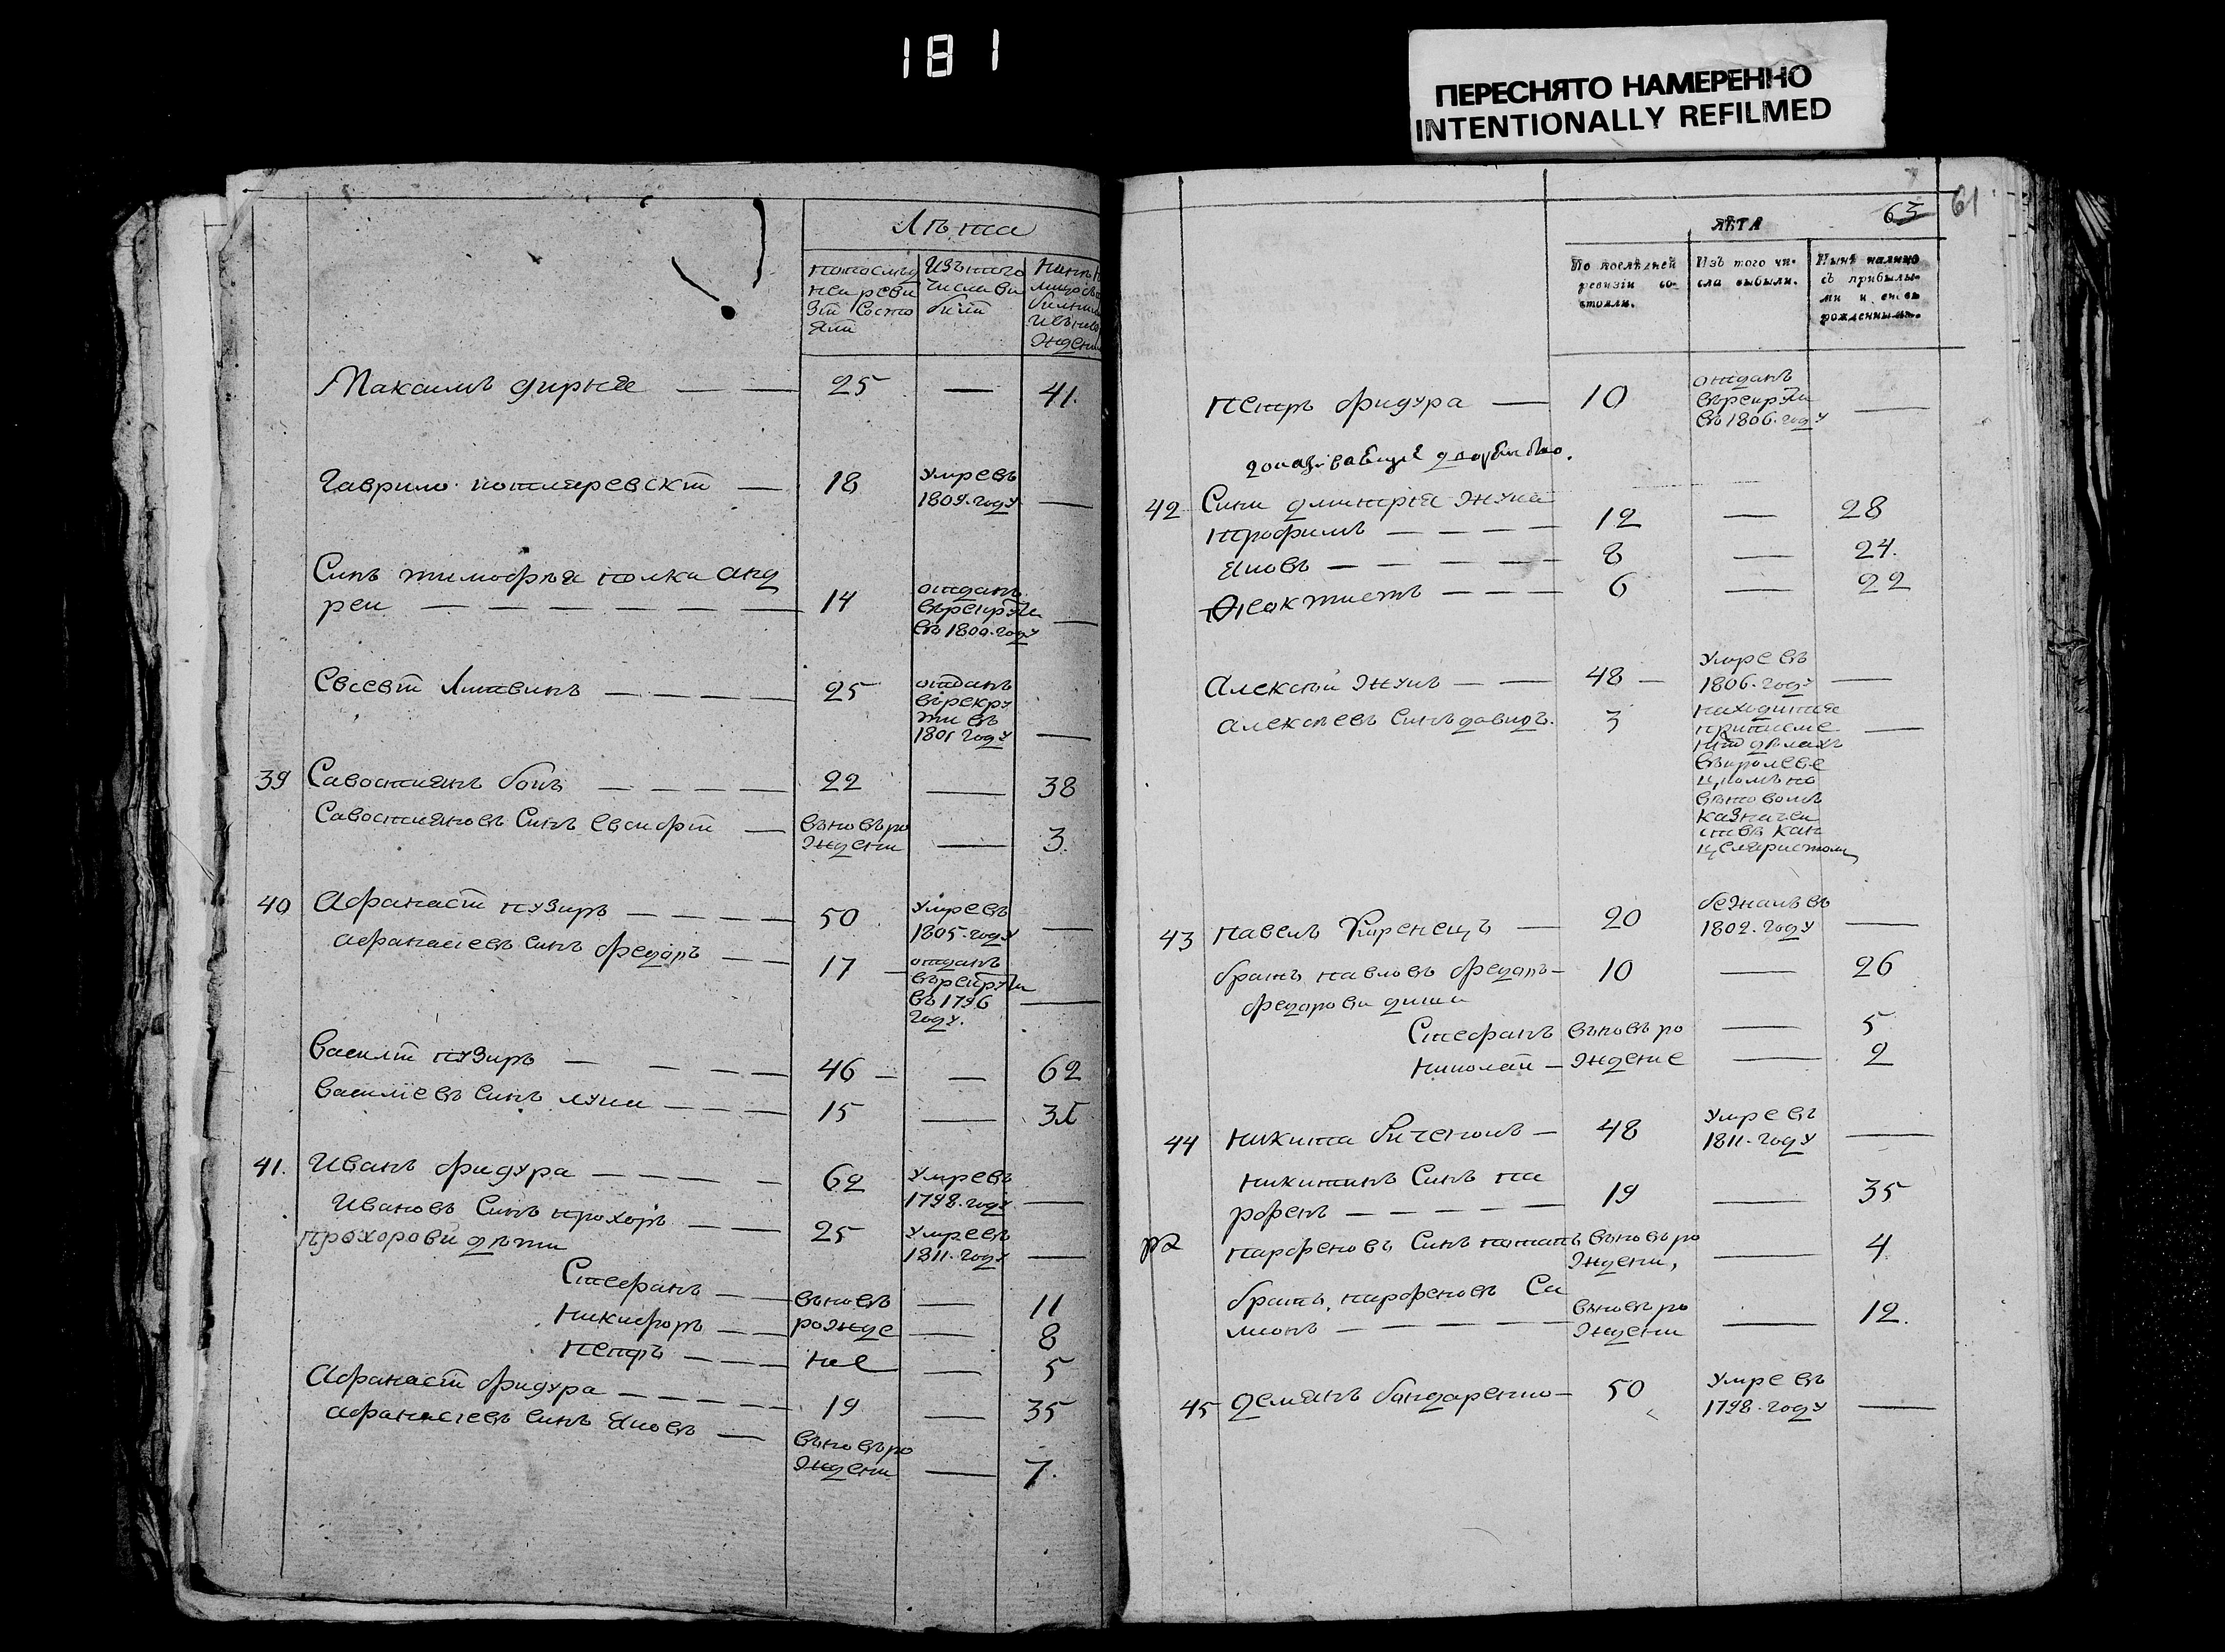 181
ПЕРЕСНЯТО НАМЕРЕННО
INTENTIONALLY REFILMED
Лѣта
попослѣд
ней реви
зіи состо
яли
Изътого
числа ви
били
Максимъ диркая 25 — 41.
Гаврило котляревскій 18 умревъ
1809. году —
Синъ тимофѣя полка анд
рей 14 отданъ
врекрути
въ 1809. году —
Евсевій Литвинъ 25 отданъ
врекру
ти въ
1801 году —
39 Савостиянъ бокъ 22 — 38
Савостияновъ Синъ евсифій въновъро
ждени — 3.
40 Афанасій пузиръ 50 умревъ
1805. году —
афанасіевъ синъ федоръ 17 отданъ
врекрути
въ 1796
году. —
василій пузиръ 46 — 62
василіевъ синъ лука 15 — 31
41. Иванъ фидура 62 умревъ
1798. году —
Ивановъ Синъ прохоръ 25 умревъ
1811. году —
прохорови дѣти
Стефанъ въновъ — 11
никифоръ рожде — 8
петръ ние — 5
Афанасій фидура 19 — 35
афанасіевъ синъ яковъ въновъро
ждени — 7.
63 61
ЛѢТА
По послѣдней
ревизіи со-
стояли.
Изъ того чи-
сла выбыли.
Нынѣ налицо
съ прибылы-
ми и вновь
рожденными.
петръ фидура 10 отданъ
врекрути
въ 1806. году —
42 Сини дмитрія жука
трофимъ 12 — 28
яковъ 8 — 24.
Феактистъ 6 — 22
алексѣй жукъ 48 умревъ
1806. году —
алексѣевъ синъ давидъ. 3 находится
приписме
нихъ дѣлахъ
въкролеве
цкомъ по
вѣтовомъ
казначей
ствѣ кан
целяристомъ —
43 павелъ 20 бежалъ въ
1802. году —
братъ павловъ федоръ 10 — 26
федорови дити
Стефанъ въновъро — 5
николай ждение — 2
44 никита 48 умревъ
1811. году —
никитинъ Синъ па
рфенъ 19 — 35
парфеновъ Синъ потапъ въновъро
ждени, — 4
братъ, парфеновъ Си
мионъ въновъро
ждени — 12.
45 демянъ бондаренко 50 умревъ
1798. году —